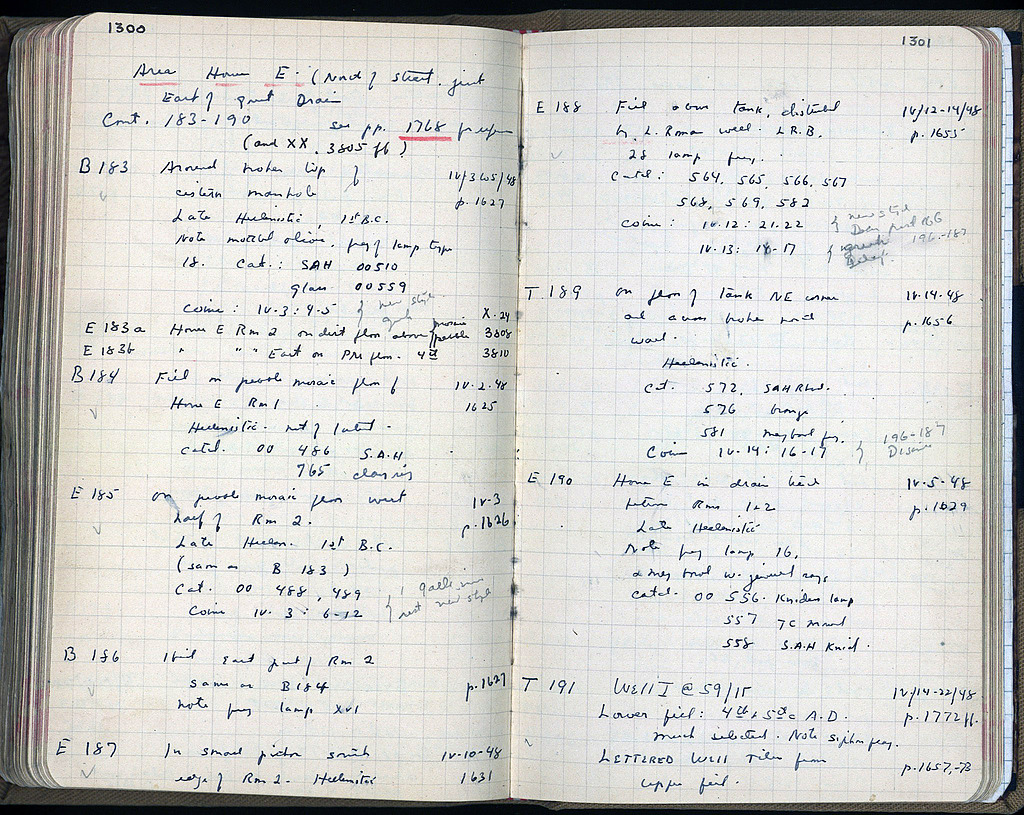 1300
Area House E. (North of street, just
East of great Drain
Cont. 183-190 see pp. 1768 for
(and XX. 3805 ff)
B 183 Around broken lip of IV/3 /48
cistern manhole p. 1627
Late Hellenistic, 1st B.C.
Note mottled olive, frag of lamp type
18. Cat.: SAH 00510
glass 00559
Coins: IV.3: 4-5 { new style X.24
E 183a House E Rm 2 on dirt floor above mosaic pebble 3808
E 183b " " " East on floor. 4th 3810
B 184 Fill on pebble mosaic floor of IV.2.48
House E Rm 1 1625
Hellenistic. not of latest.
catd. 00 486 S.A.H
765
E 185 on pebble mosaic floor west IV-3
half of Rm 2. p.1626
Late Hellen. 1st B.C.
(same as B 183)
Cat. 00 488, 489
Coins IV. 3: 6-12 { rest new style
B 186 Ibid East part of Rm 2
same as B184 p.1627
note frag lamp XVI
E 187 In small south IV-10-48
edge of Rm 2. Hellenistic 1631
1301
E 188 Fill above tank, disturbed IV/12-14/48
by L. Roman well. L.R.B. p.1655
28 lamp frag.
Catd: 564, 565, 566, 567
568, 569, 582
coins: IV.12: 21.22 } new style
IV.13: 16-17 { 196-187
T 189 on floor of tank NE corner IV.14.48
and across broken north p.1656
wall.
Hellenistic.
Cat. 572, SAH
576 bronze
581
Coin IV.14: 16-17 { 196-187
E 190 House E in drain IV.5-48
between Rms 1+2 p.1629
Late Hellenistic
Note frag lamp 16,
& Meg bowl w. rays
Catd. 00 556. Knidian lamp
557 TC
558 S.A.H Knid.
T 191 WELL I @ 59/IΓ IV/14-22/48
Lower fill: 4th & 5th c A.D. p.1772 ff.
much selected. Note siphon frag.
LETTERED WELL Tiles from p.1657,-73
upper fill.